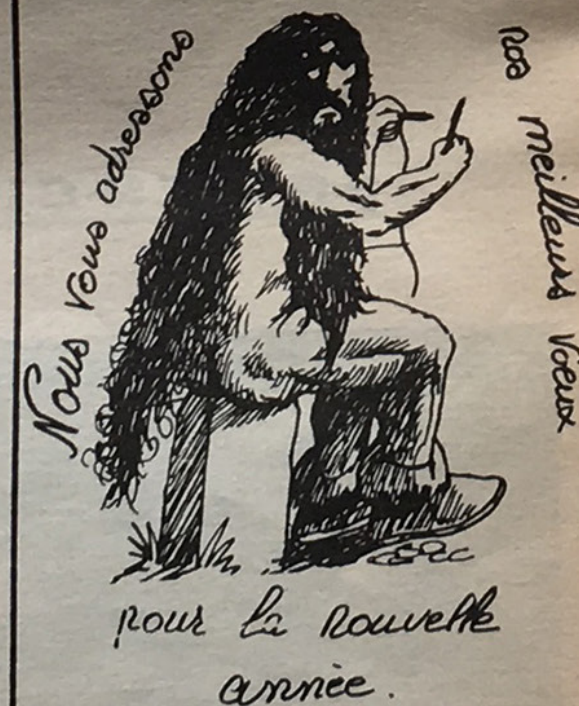 Nous vous adressons
nos meilleurs voeux
pour la nouvelle
année.